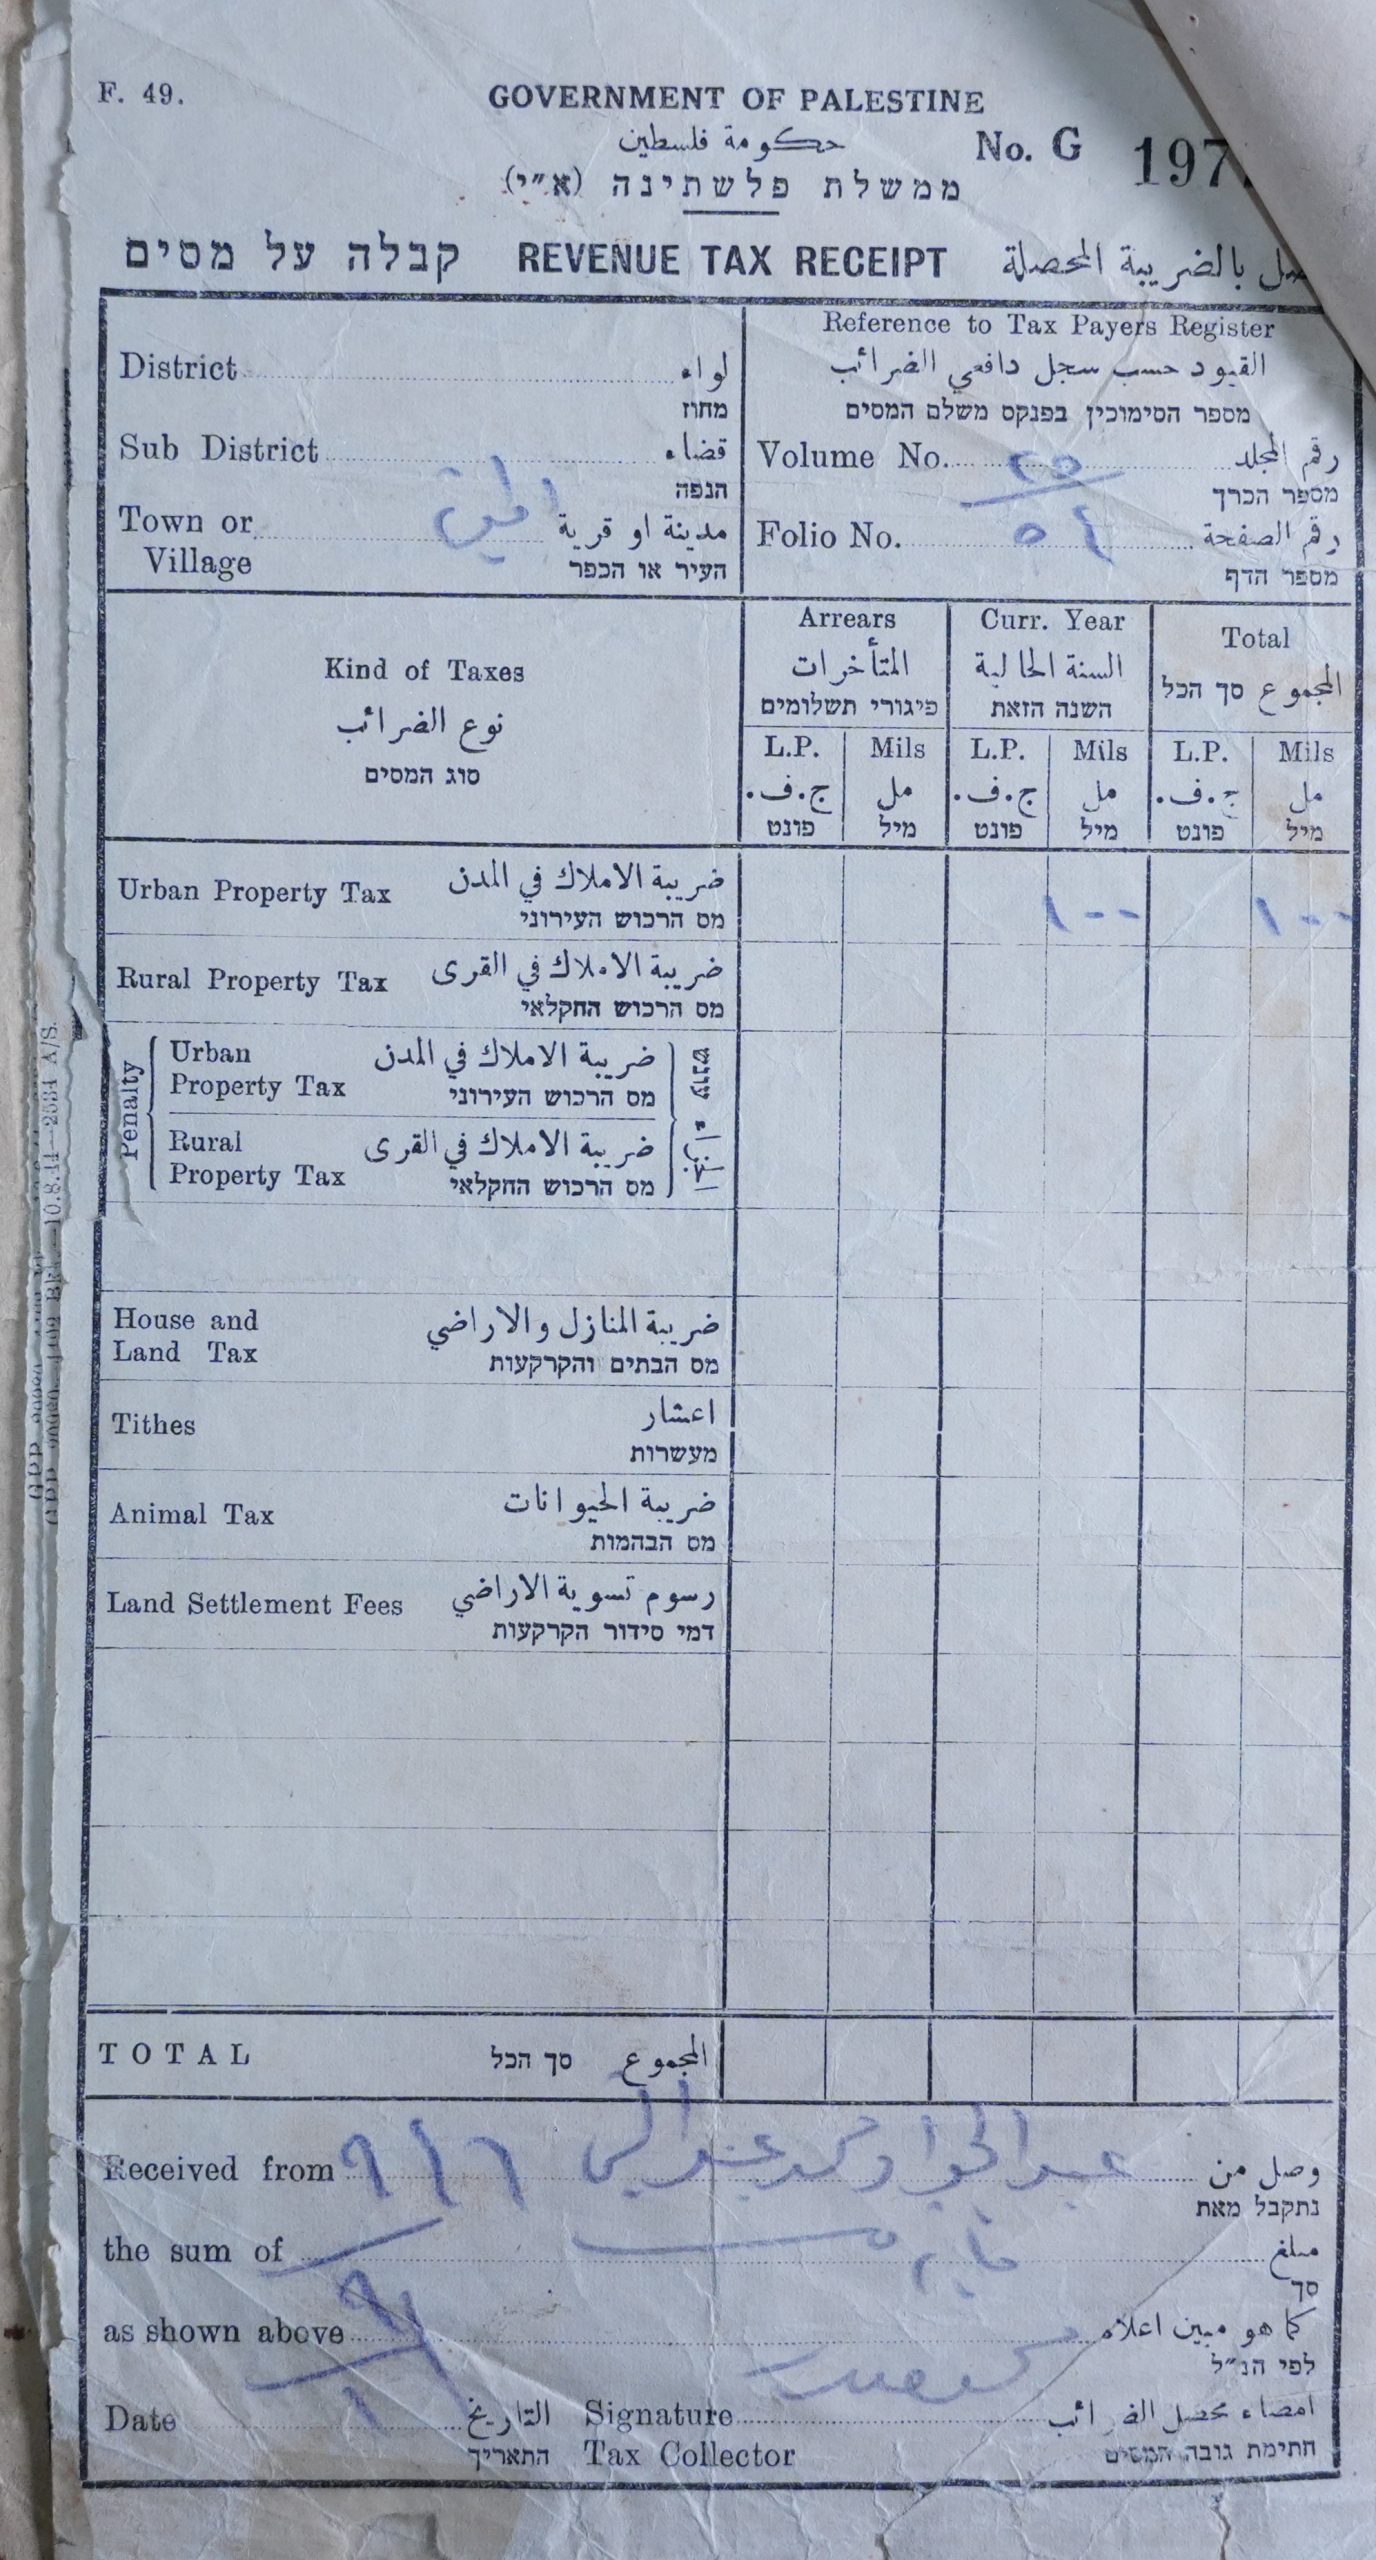 F. 49.
GOVERNMENT OF PALESTINE
حكومة فلسطين
No. G 197
ממשלת פלשתינה (א״י)
קבלה על מסים REVENUE TAX RECEIPT بالضريبة المحصلة
Reference to Tax Payers Register
القيود حسب سجل دافعي الضرائب
מספר הסימוכין בפנקס משלם המסים
District لواء
מחוז
Sub District قضاء
הנפה
Town or Village مدينة او قرية
העיר או הכפר
Volume No. ٢٥ رقم المجلد
מספר הכרך
Folio No. رقم الصفحة
מספר הדף
Kind of Taxes
نوع الضرائب
סוג המסים
Arrears
المتأخرات
פיגורי תשלומים
Curr. Year
السنة الحالية
השנה הזאת
Total
المجموع סך הכל
L.P. Mils L.P. Mils L.P. Mils
ج.ف. مل ج.ف. مل ج.ف. مل
פונט מיל פונט מיל פונט מיל
Urban Property Tax ضريبة الاملاك في المدن
מס הרכוש העירוני
١٠٠ ١٠٠
Rural Property Tax ضريبة الاملاك في القرى
מס הרכוש החקלאי
Penalty
Urban Property Tax ضريبة الاملاك في المدن
מס הרכוש העירוני
עונש
Rural Property Tax ضريبة الاملاك في القرى
מס הרכוש החקלאי
House and Land Tax ضريبة المنازل والاراضي
מס הבתים והקרקעות
Tithes اعشار
מעשרות
Animal Tax ضريبة الحيوانات
מס הבהמות
Land Settlement Fees رسوم تسوية الاراضي
דמי סידור הקרקעות
TOTAL סך הכל المجموع
Received from عبد الجواد وصل من
נתקבל מאת
the sum of مبلغ
סך
as shown above كما هو مبين اعلاه
לפי הנ״ל
Date التاريخ
התאריך
Signature Tax Collector امضاء محصل الضرائب
חתימת גובה המסים
10.8.44—2534 A/S.